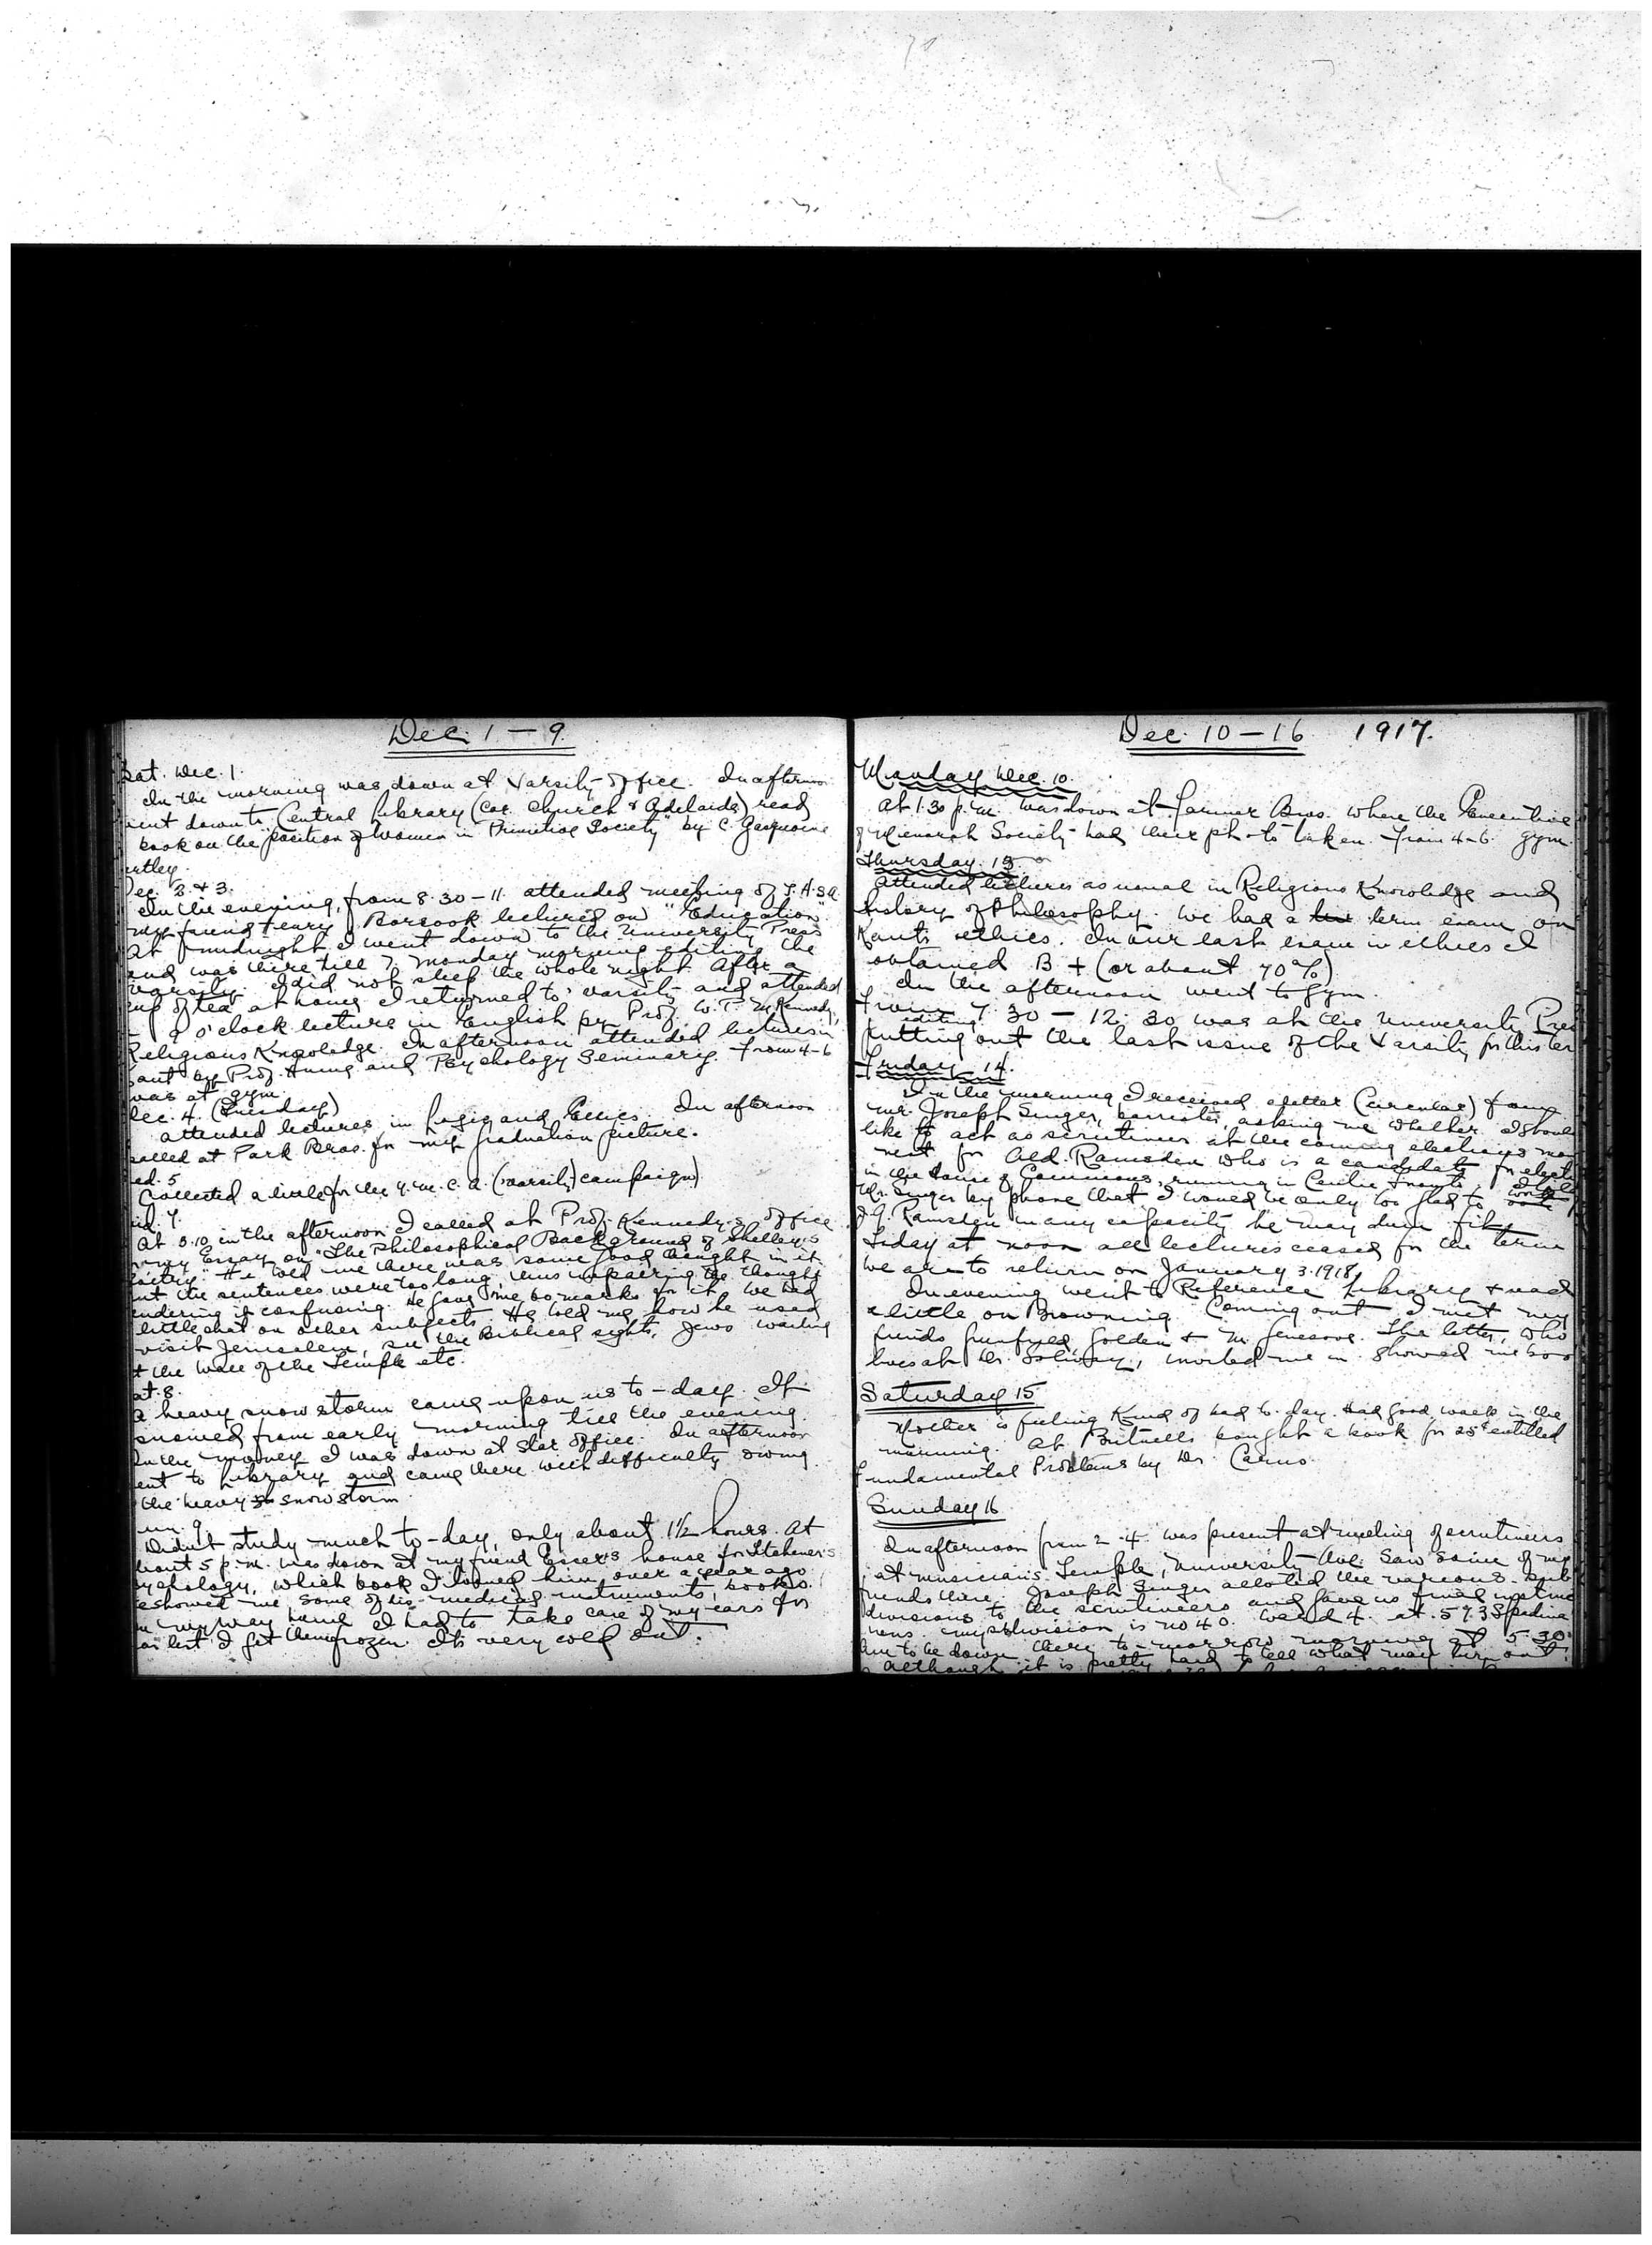 Dec. 1 – 9.
Sat. Dec. 1.
In the morning was down at Varsity Office. In afternoon
went down to Central Library (cor. Church & Adelaide) read
book on the "Position of Women in Primitive Society" by C. Gasquoine
artley.
Dec. 2 & 3.
In the evening, from 8.30 – 11 attended meeting of
my friend Henry Borsook lectured on "Education".
At midnight I went down to the University Press
and was there till 7 Monday morning editing the
Varsity. I did not sleep the whole night. After a
cup of tea at home I returned to Varsity and attended
9 o'clock lecture in English by Prof. W. P. M. Kennedy,
Religious Knowledge. In afternoon attended lectures in
Kant by Prof. and Psychology Seminary. From 4-6
was at gym.
Dec. 4. (Tuesday)
attended lectures in Logic and Ethics. In afternoon
called at Park Bros. for my graduation picture.
ed. 5
Collected a little for the Y.M.C.A. (Varsity) campaign)
At 5.10 in the afternoon I called at Prof. Kennedy's office
my Essay on "The Philosophical Background of Shelley's
Poetry" He told me there was some good thought in it
but the sentences were too long, thus impairing the thought
endering it confusing. He gave me 60 marks for it. We had
little chat on other subjects. He told me how he used
visit Jerusalem, see the Biblical sights, Jews wailing
t the Wall of the Temple etc.
at. 8.
a heavy snow storm came upon us to-day. It
snowed from early morning till the evening.
In the morney I was down at Star Office. In afternoon
ent to Library and came there with difficulty owing
the heavy snow storm
un. 9.
Didn't study much to-day, only about 1½ hours. At
about 5 p.m. was down at my friend Esser's house for Titchener's
sychology, which book I loaned him over a year ago
e showed me some of his medical instruments, books.
n my way home I had to take care of my ears for
ear lest I get them frozen. It's very cold out.
Dec. 10 – 16 1917.
Monday Dec. 10.
At 1.30 p.m. was down at Farmer Bros. where the Executive
of Menorah Society had their photo taken. From 4-6 gym.
Thursday. 13
Attended lectures as usual in Religious Knowledge and
history of Philosophy. We had a term exam on
Kant's ethics. In our last exam in ethics I
obtained B + (or about 70%)
In the afternoon went to gym.
From 7.30 – 12.30 was at the University Pres
editing
putting out the last issue of the Varsity for this ter
Friday 14.
In the morning I received a letter (circular) from
Mr. Joseph Singer, barrister, asking me whether I should
like to act as scrutineer at the coming elections
next for Ald. Ramsden who is a candidate for elect
in the House of Commons, running in Centre Toronto. I told
Mr. Singer by phone that I would be only too glad to work
J.G. Ramsden in any capacity he may deem fit.
Today at noon all lectures ceased for the term
We are to return on January 3. 1918.
In evening went to Reference Library & read
a little on Browning. Coming out I met my
friends Golden & M. Genesove. The latter, who
lives at Dr. , invited me in. Showed me
Saturday 15
Mother is feeling kind of bad to-day. Had good walk in the
morning. At Britnells bought a book for 25¢ entitled
Fundamental Problems by Dr. Carus.
Sunday 16
In afternoon from 2-4 was present at meeting of scrutineers
at Musician's Temple, University Ave. Saw some of my
friends there. Joseph Singer alloted the various sub
divisions to the scrutineers and gave us final instruc
ions. My subdivision is No 40. Ward 4. at 573 Spadina
Am to be down there to-morrow morning at 5.30
Although it is pretty hard to tell what may turn out.